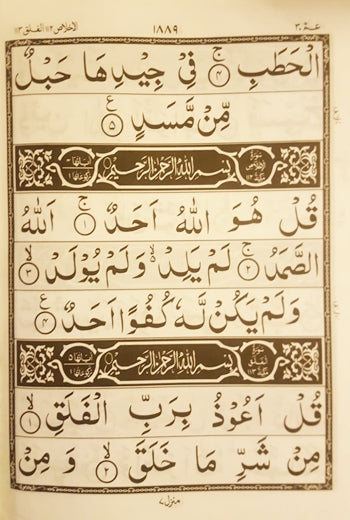 عـمّ ٣٠ ١٨٨٩ الاخلاص ١١٢ الفلق ١١٣
الْحَطَبِ ۚ﴿٤﴾ فِيْ جِيْدِهَا حَبْلٌ
مِّنْ مَّسَدٍ ۠﴿٥﴾
بِسْمِ اللّٰهِ الرَّحْمٰنِ الرَّحِيْمِ
قُلْ هُوَ اللّٰهُ اَحَدٌ ۚ﴿١﴾ اَللّٰهُ
الصَّمَدُ ۚ﴿٢﴾ لَمْ يَلِدْ ۙ وَلَمْ يُوْلَدْ ۙ﴿٣﴾
وَلَمْ يَكُنْ لَّهٗ كُفُوًا اَحَدٌ ۠﴿٤﴾
بِسْمِ اللّٰهِ الرَّحْمٰنِ الرَّحِيْمِ
قُلْ اَعُوْذُ بِرَبِّ الْفَلَقِ ۙ﴿١﴾
مِنْ شَرِّ مَا خَلَقَ ۙ﴿٢﴾ وَ مِنْ
منزل ٧